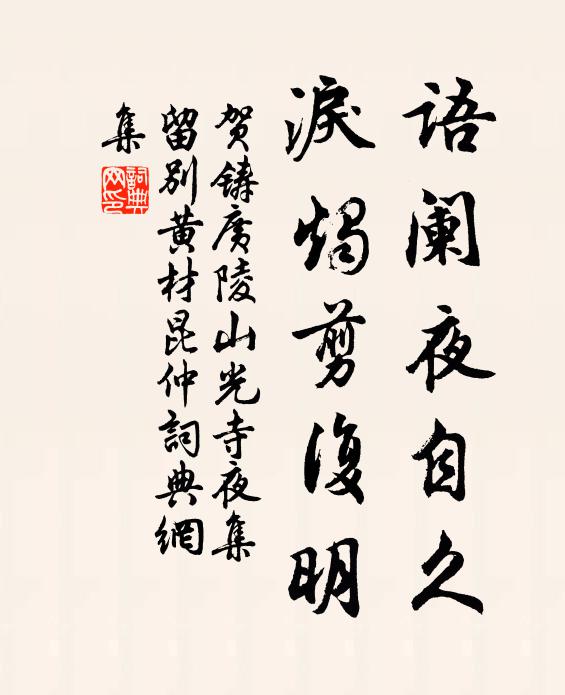 语阑夜自久
淚燭剪復明
贺鑄廣陵山光寺夜集
留别黄材昆仲詞典網
集
詞典网印